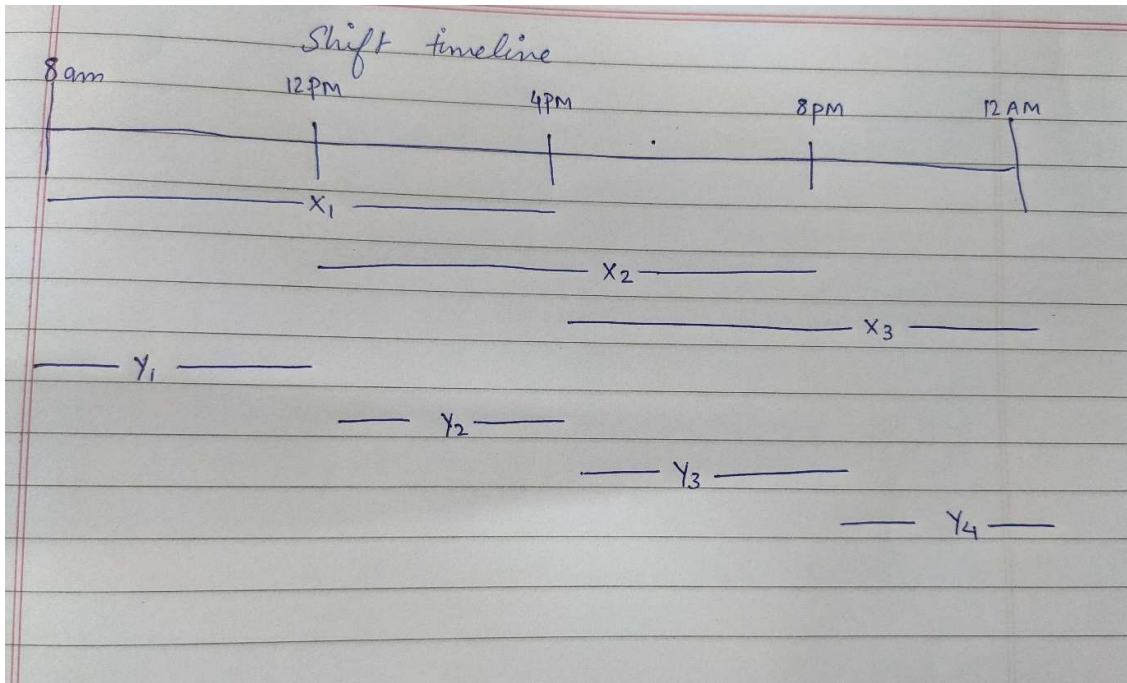 Shift timeline
8am 12PM 4PM 8PM 12AM
X1
X2
X3
Y1
Y2
Y3
Y4